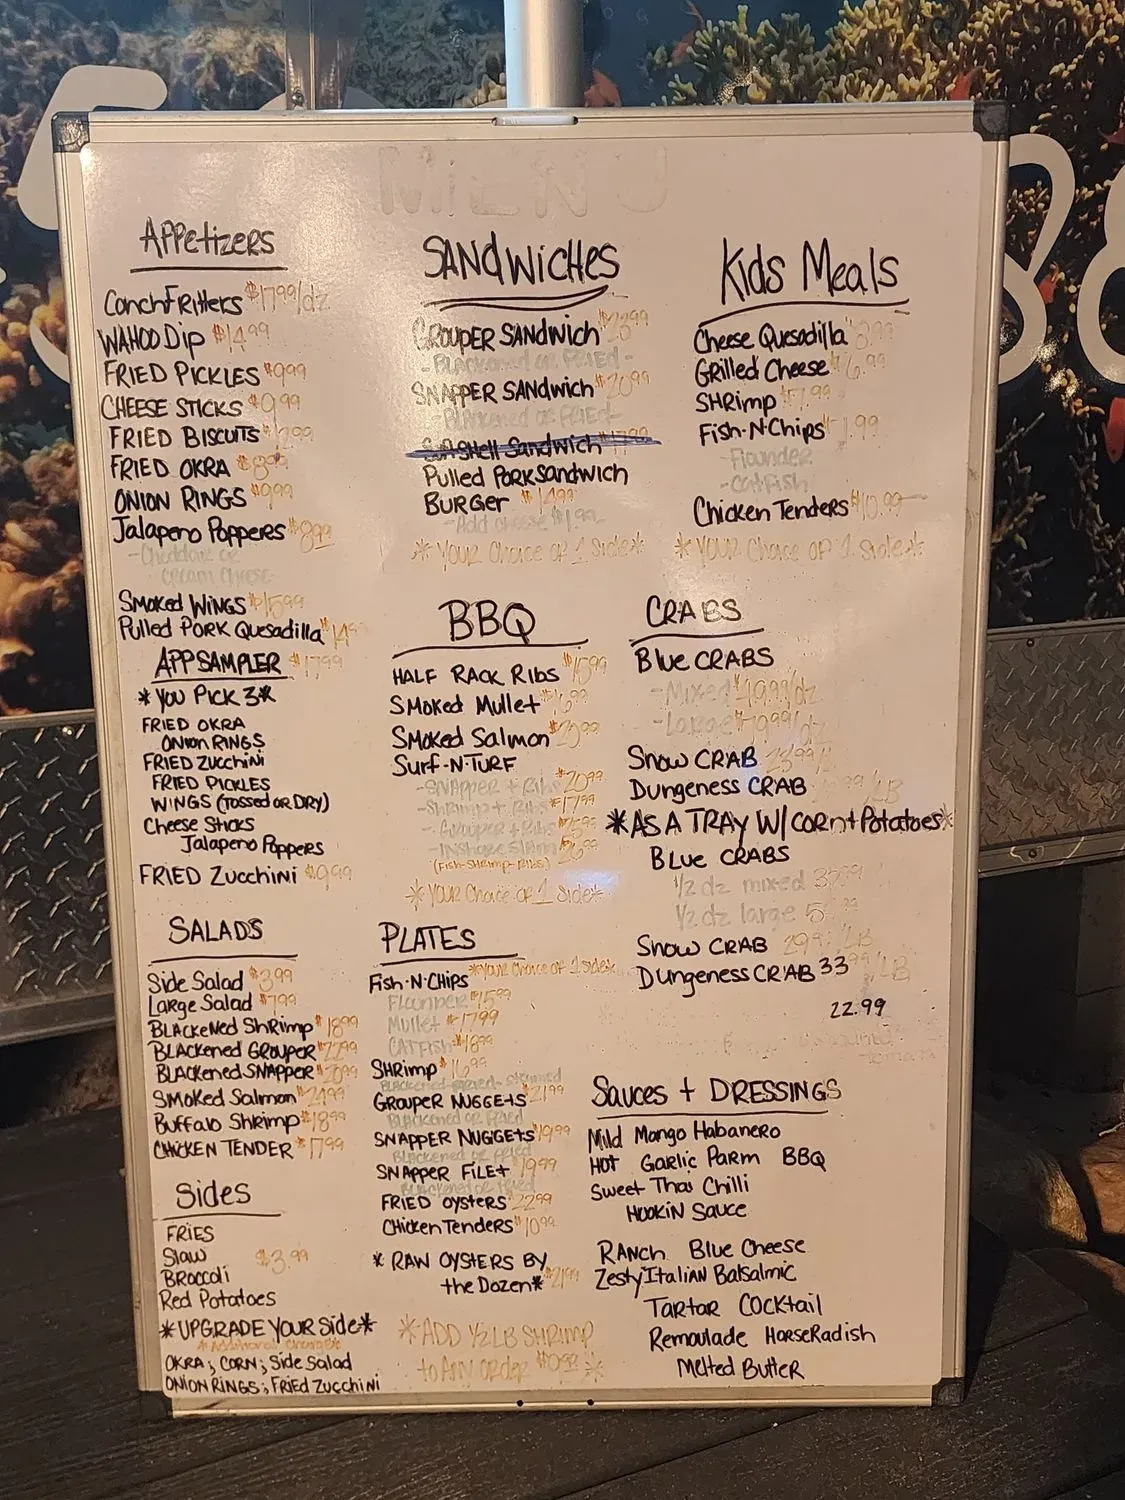 MENU
Appetizers
Conch Fritters $17.99/dz
WAHOO Dip $14.99
FRIED PICKLES $9.99
CHEESE STICKS $9.99
FRIED BISCUITS
FRIED OKRA
ONION RINGS $9.99
Jalapeno Poppers $8.99
-Cheddar or
cream cheese-
Smoked WINGS $15.99
Pulled PORK Quesadilla
APP SAMPLER $17.99
*YOU PICK 3*
FRIED OKRA
ONION RINGS
FRIED Zucchini
FRIED PICKLES
WINGS (TOSSED OR DRY)
Cheese Sticks
Jalapeno Poppers
FRIED Zucchini $9.99
SALADS
Side Salad $3.99
Large Salad $7.99
BLACKENED ShRimp $18.99
BLACKened GROUPER
BLACKened SNAPPER
SMOKED Salmon
Buffalo Shrimp $18.99
CHICKEN TENDER $17.99
Sides
FRIES
Slaw $3.99
BROccoli
Red Potatoes
*UPGRADE YOUR Side*
OKRA; CORN; Side Salad
ONION RINGS; FRIEd Zucchini
SANDWICHES
GROUPER SANDWICH
-BLACKened OR FRIED-
SNAPPER SANDWich $20.99
-BLACKened OR FRIED-
Soft Shell Sandwich
Pulled PORK Sandwich
BURGER $14.99
-Add cheese $1.99-
*YOUR Choice OF 1 Side*
BBQ
HALF RACK Ribs $15.99
SMOKED Mullet
SMOKED Salmon
Surf-N-TURF
-SNAPPER + Ribs $20.99
-ShRimp + Ribs $17.99
-GROUPER + Ribs
-INShORE Slam
(Fish-Shrimp-Ribs)
*YOUR Choice OF 1 Side*
PLATES
*YOUR Choice OF 1 Side*
Fish-N-CHIPS
Flounder $15.99
Mullet $17.99
CATFISH
SHRimp $16.99
BLACKENED-FRIED-Steamed
GROUPER NUGGETS $21.99
BLACKENED OR FRIED
SNAPPER NUGGETS $19.99
Blackened OR Fried
SNAPPER FILET $19.99
BLACKENED OR FRIED
FRIED OYSTERS $22.99
CHICKEN TENDERS $10.99
*RAW OYSTERS BY
the Dozen* $21.99
*ADD 1/2 LB SHRIMP
to ANY ORDER
Kids Meals
Cheese Quesadilla
GRilled Cheese $6.99
SHRimp $7.99
Fish-N-Chips
-Flounder
-CATFISH
Chicken Tenders $10.99
*YOUR Choice OF 1 Side*
CRABS
Blue CRABS
-Mixed $49.99/dz
-Large $79.99/dz
Snow CRAB
Dungeness CRAB
*AS A TRAY W/ CORN + Potatoes*
BLUE CRABS
1/2 dz mixed
1/2 dz large
Snow CRAB
Dungeness CRAB 33.99
22.99
Sauces + DRESSINGS
Mild Mango Habanero
HOT Garlic Parm BBQ
Sweet Thai Chilli
HOOKIN SAUCE
RANCH Blue Cheese
Zesty Italian Balsalmic
TARTAR COCKtail
Remoulade HORSERadish
Melted Butter